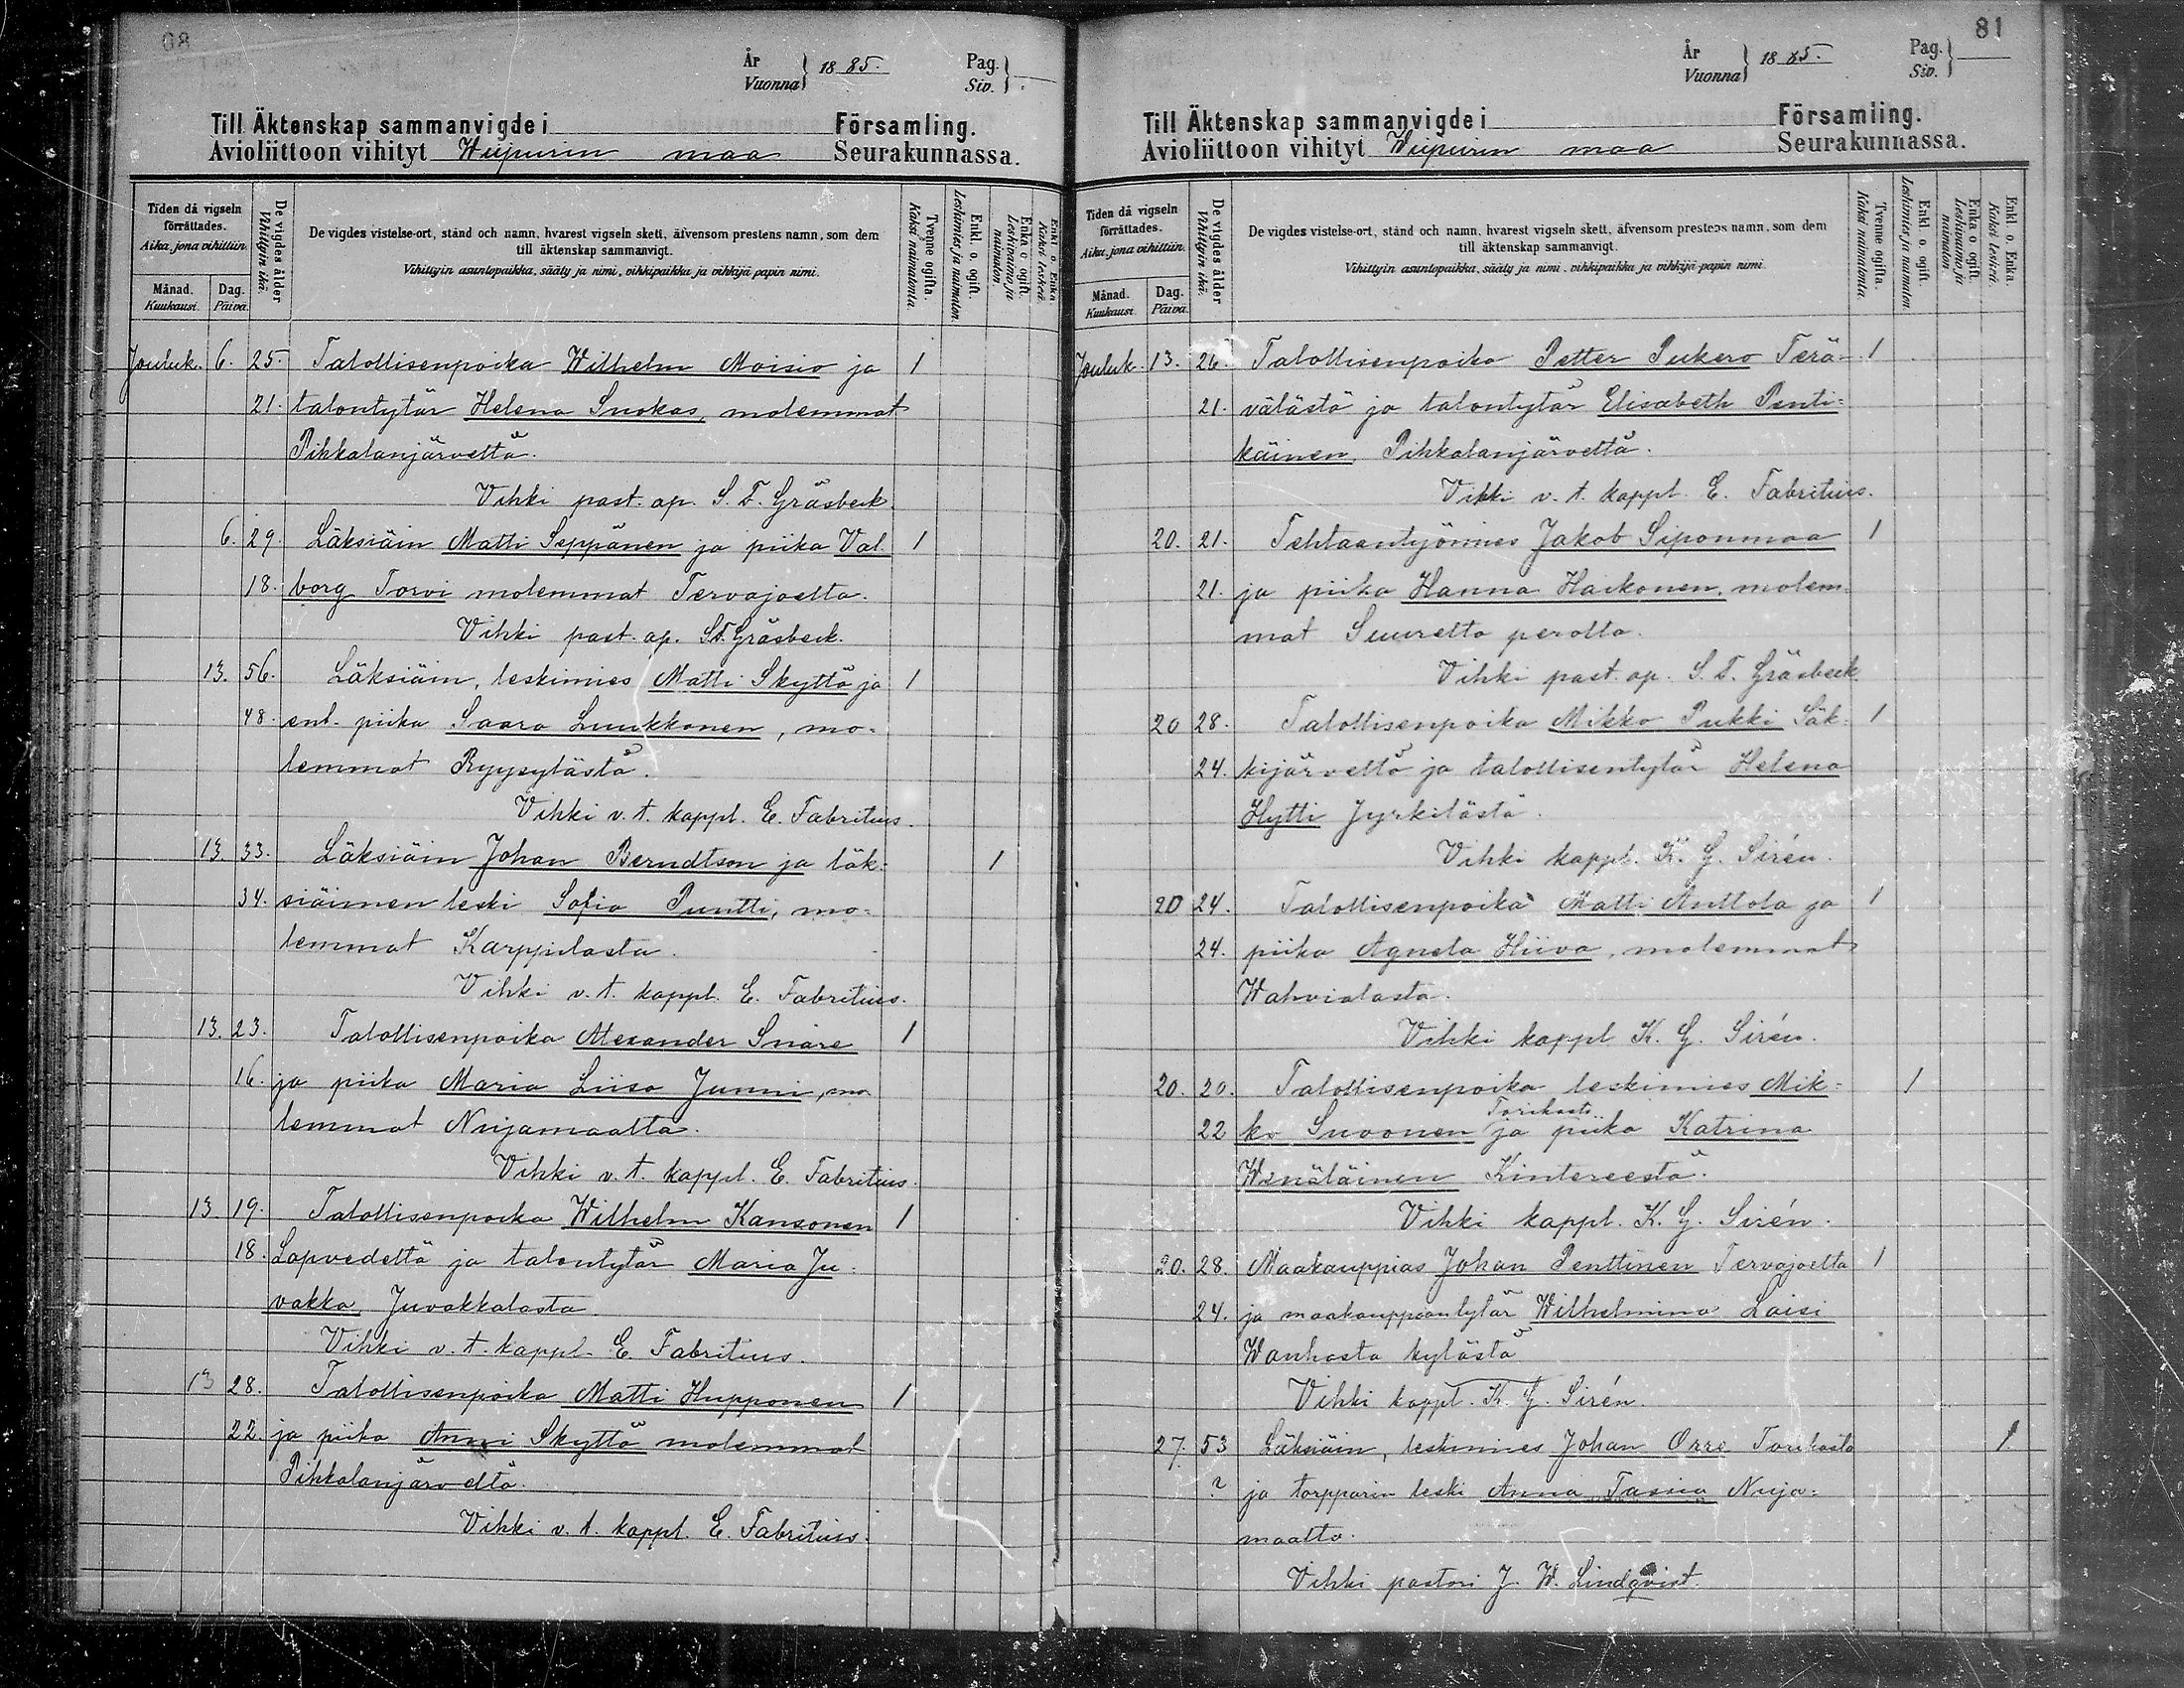 80
År
Vuonna } 1885.
Pag.
Siv. }
Till Äktenskap sammanvigde i Församling.
Avioliittoon vihityt Wiipurin maa Seurakunnassa.
Tiden då vigseln förrättades.
Aika, jona vihittiin.
Månad.
Kuukausi.
Dag.
Päivä.
De vigdes ålder
Vihittyin ikä.
De vigdes vistelse-ort, stånd och namn, hvarest vigseln skett, äfvensom prestens namn, som dem
till äktenskap sammanvigt.
Vihittyin asuntopaikka, sääty ja nimi, vihkipaikka ja vihkijä papin nimi.
Tvenne ogifta.
Kaksi naimatonta.
Enkl. o. ogift.
Leskimies ja naimaton.
Enka o. ogift.
Leskivaimo ja naimaton.
Enkl. o. Enka
Kaksi leskeä.
Jouluk. 6. 25. Talollisenpoika Wilhelm Moisio ja 1
21. talontytär Helena Suokas, molemmat
Pihkalanjärveltä.
Vihki past. ap. S. T. Gräsbeck.
6. 29. Läksiäin Matti Seppänen ja piika Val- 1
18. borg Torvi molemmat Tervajoelta.
Vihki past. ap. S.T. Gräsbeck.
13. 56. Läksiäin, leskimies Matti Skyttä ja 1
48. ent. piika Saara Luukkonen, mo-
lemmat Ryysylästä.
Vihki v. t. kappl. E. Fabritius.
13. 33. Läksiäin Johan Berndtson ja läk- 1
34. siäimen leski Sofia Puntti, mo-
lemmat Karppilasta.
Vihki v. t. kappl. E. Fabritius.
13. 23. Talollisenpoika Alexander Snäre 1
16. ja piika Maria Liisa Junni, mo-
lemmat Nuijamaalta.
Vihki v. t. kappl. E. Fabritius.
13. 19. Talollisenpoika Wilhelm Kansonen 1
18. Lapvedeltä ja talontytär Maria Ju-
vakka, Juvakkalasta
Vihki v. t. kappl. E. Fabritius.
13 28. Talollisenpoika Matti Hupponen 1
22. ja piika Anni Skyttä molemmat
Pihkalanjärveltä.
Vihki v. t. kappl. E. Fabritius.
81
År
Vuonna } 1885.
Pag.
Siv. }
Till Äktenskap sammanvigde i Församling.
Avioliittoon vihityt Wiipurin maa Seurakunnassa.
Tiden då vigseln förrättades.
Aika, jona vihittiin.
Månad.
Kuukausi
Dag.
Päivä.
De vigdes ålder
Vihittyin ikä.
De vigdes vistelse-ort, stånd och namn, hvarest vigseln skett, äfvensom prestens namn, som dem
till äktenskap sammanvigt.
Vihittyin asuntopaikka, sääty ja nimi, vihkipaikka ja vihkijä papin nimi
Tvenne ogifta.
Kaksi naimatonta
Enkl. o. ogift.
Leskimies ja naimaton.
Enka o. ogift.
Leskivaimo ja naimaton
Enkl. o. Enka.
Kaksi leskeä.
Jouluk. 13. 26. Talollisenpoika Petter Pukero Terä- 1
21. välästä ja talontytär Elisabeth Penti-
käinen, Pihkalanjärveltä.
Vihki v. t. kappl. E. Fabritius.
20. 21. Tehtaantyömies Jakob Siponmaa 1
21. ja piika Hanna Haikonen, molem-
mat Suurelta perolta.
Vihki past. ap. S. T. Gräsbeck.
20 28. Talollisenpoika Mikko Pukki Säk- 1
24. kijärveltä ja talollisentytär Helena
Hytti Jyrkilästä.
Vihki kappl. K. G. Sirén.
20 24. Talollisenpoika Matti Anttola ja 1
24. piika Agneta Hiiva, molemmat
Wahvialasta.
Vihki kappl K. G. Sirén.
20. 20. Talollisenpoika leskimies Mik- 1
Torikasta
22 ko Suvonen ja piika Katrina
Wenäläinen Kintereestä.
Vihki kappl. K. G. Sirén.
20. 28. Maakauppias Johan Penttinen Tervajoelta 1
24. ja maakauppiantytär Wilhelmina Laisi
Wanhasta kylästä
Vihki kappl. K. G. Sirén.
27. 53 Läksiäin, leskimies Johan Orre Torikasta 1.
? ja torpparin leski Anna Tassia Nuija-
maalta.
Vihki pastori J. W. Lindqvist.